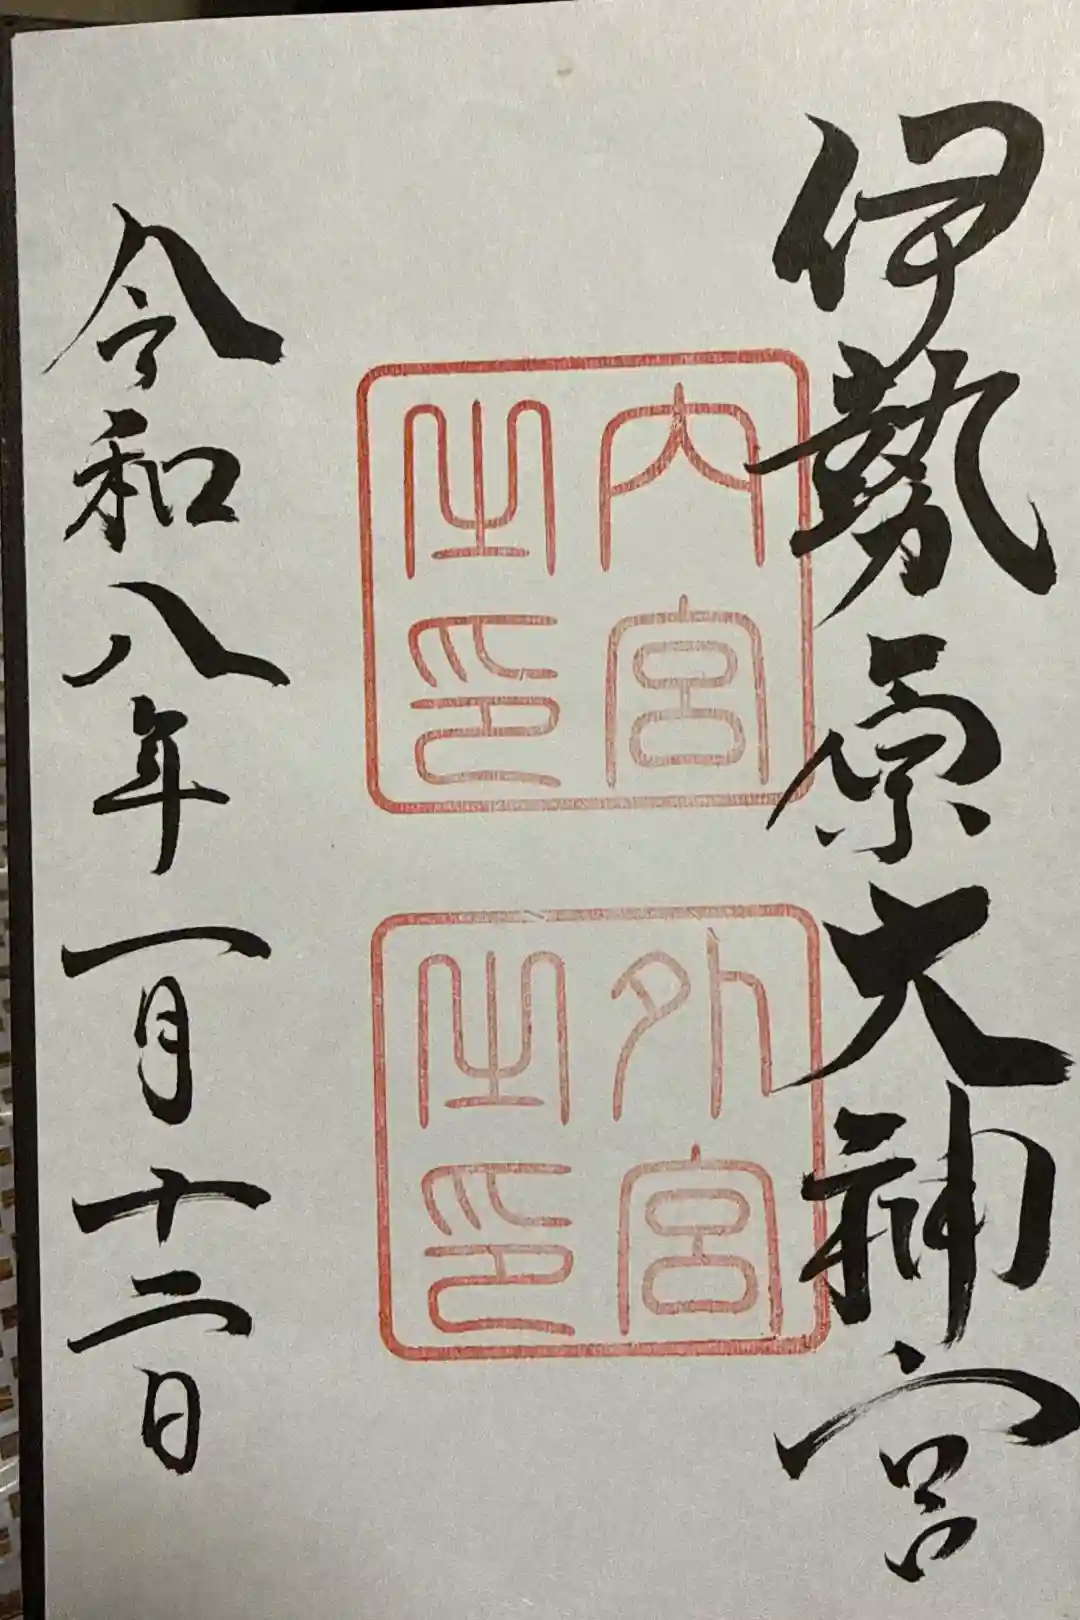 伊勢原大神宮
内宮
之印
外宮
之印
令和八年一月十二日